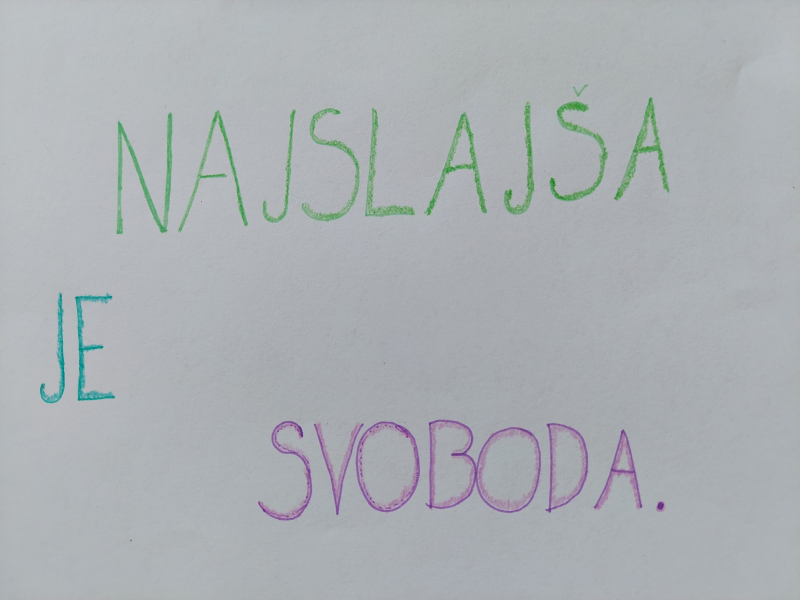 NAJSLAJŠA
JE
SVOBODA.